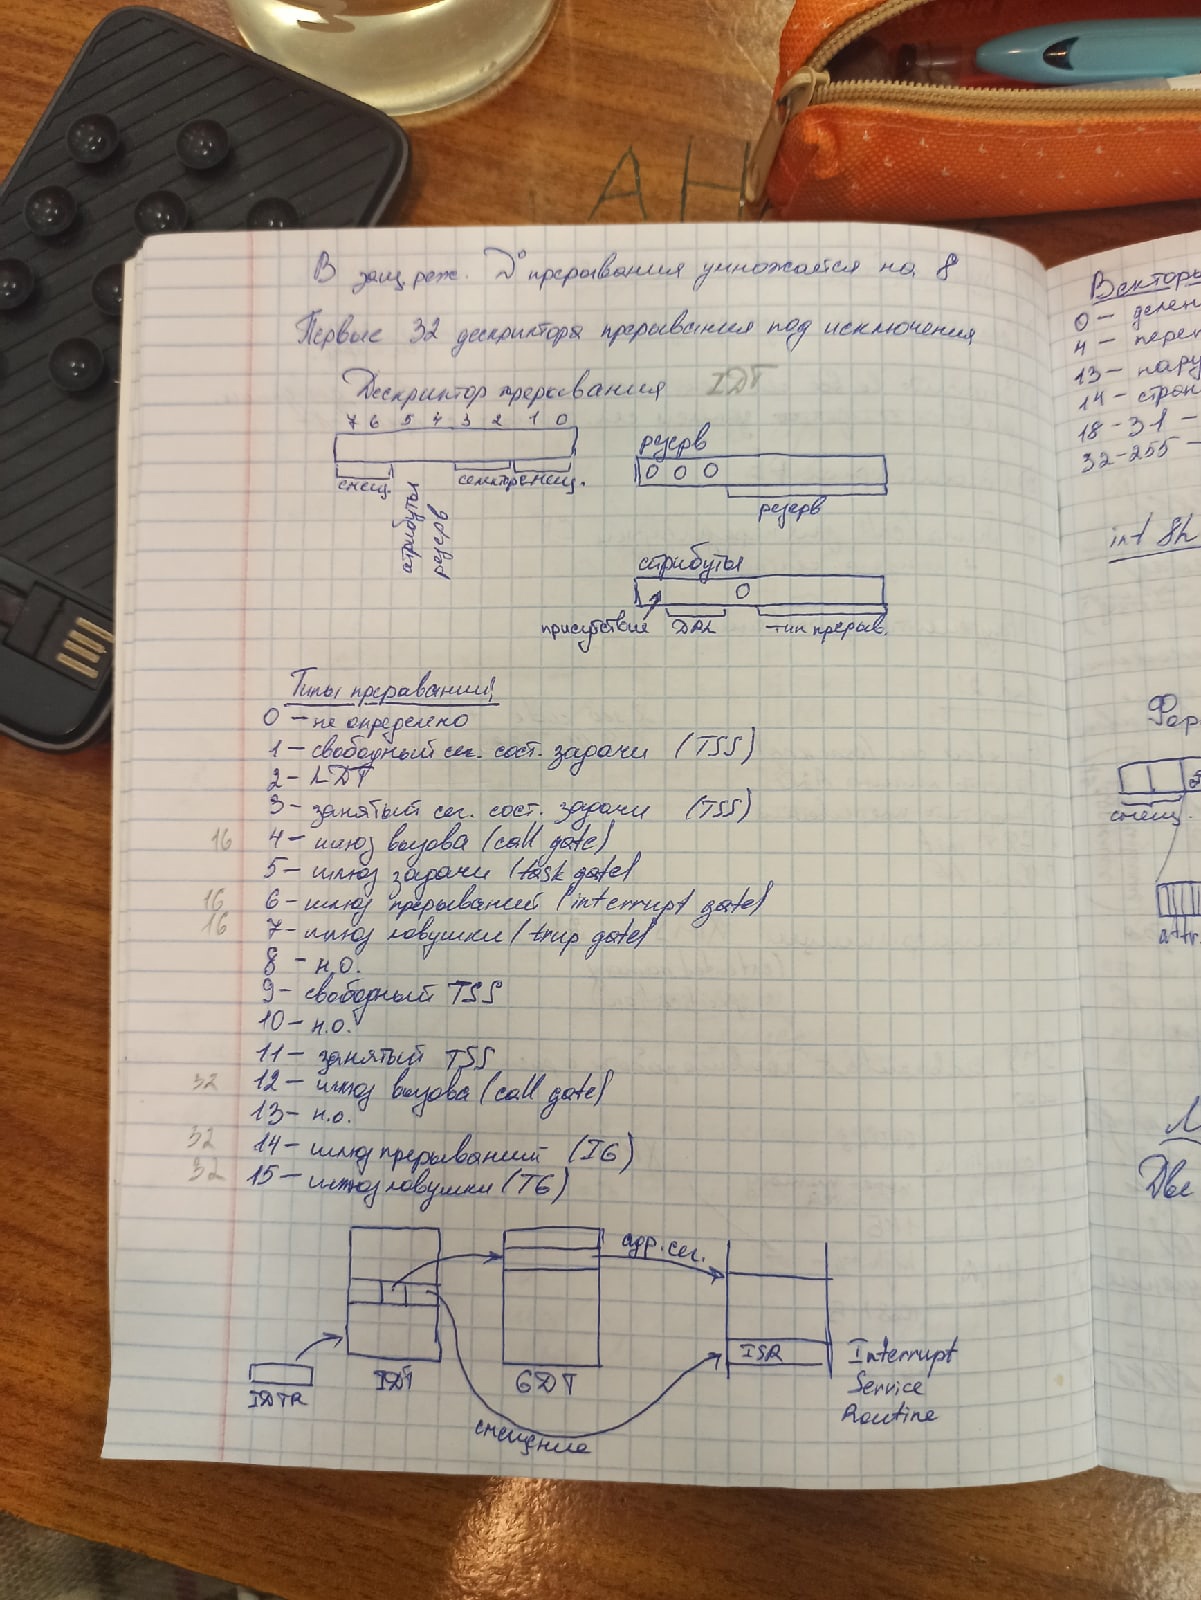 АН
В защ. реж. D° прерывания умножается на 8
Первые 32 дескриптора прерывания под исключения
Дескриптор прерывания IDT
7 6 5 4 3 2 1 0
смещ. атрибуты резерв селектор смещ.
резерв
0 0 0
резерв
атрибуты
0
присутствие DPL тип прерыв.
Типы прерываний:
0 – не определено
1 – свободный сег. сост. задачи (TSS)
2 – LDT
3 – занятый сег. сост. задачи (TSS)
16 4 – шлюз вызова (call gate)
5 – шлюз задачи (task gate)
16 6 – шлюз прерываний (interrupt gate)
16 7 – шлюз ловушки (trap gate)
8 – н.о.
9 – свободный TSS
10 – н.о.
11 – занятый TSS
32 12 – шлюз вызова (call gate)
13 – н.о.
32 14 – шлюз прерываний (IG)
32 15 – шлюз ловушки (TG)
адр. сег.
ISR
IDTR IDT GDT
Interrupt
Service
Routine
смещение
Векторы
0 – делен
4 – переп
13 – нару
14 – стран
18-31 –
32-255 –
int 8h
Фор
смещ.
attr
Две